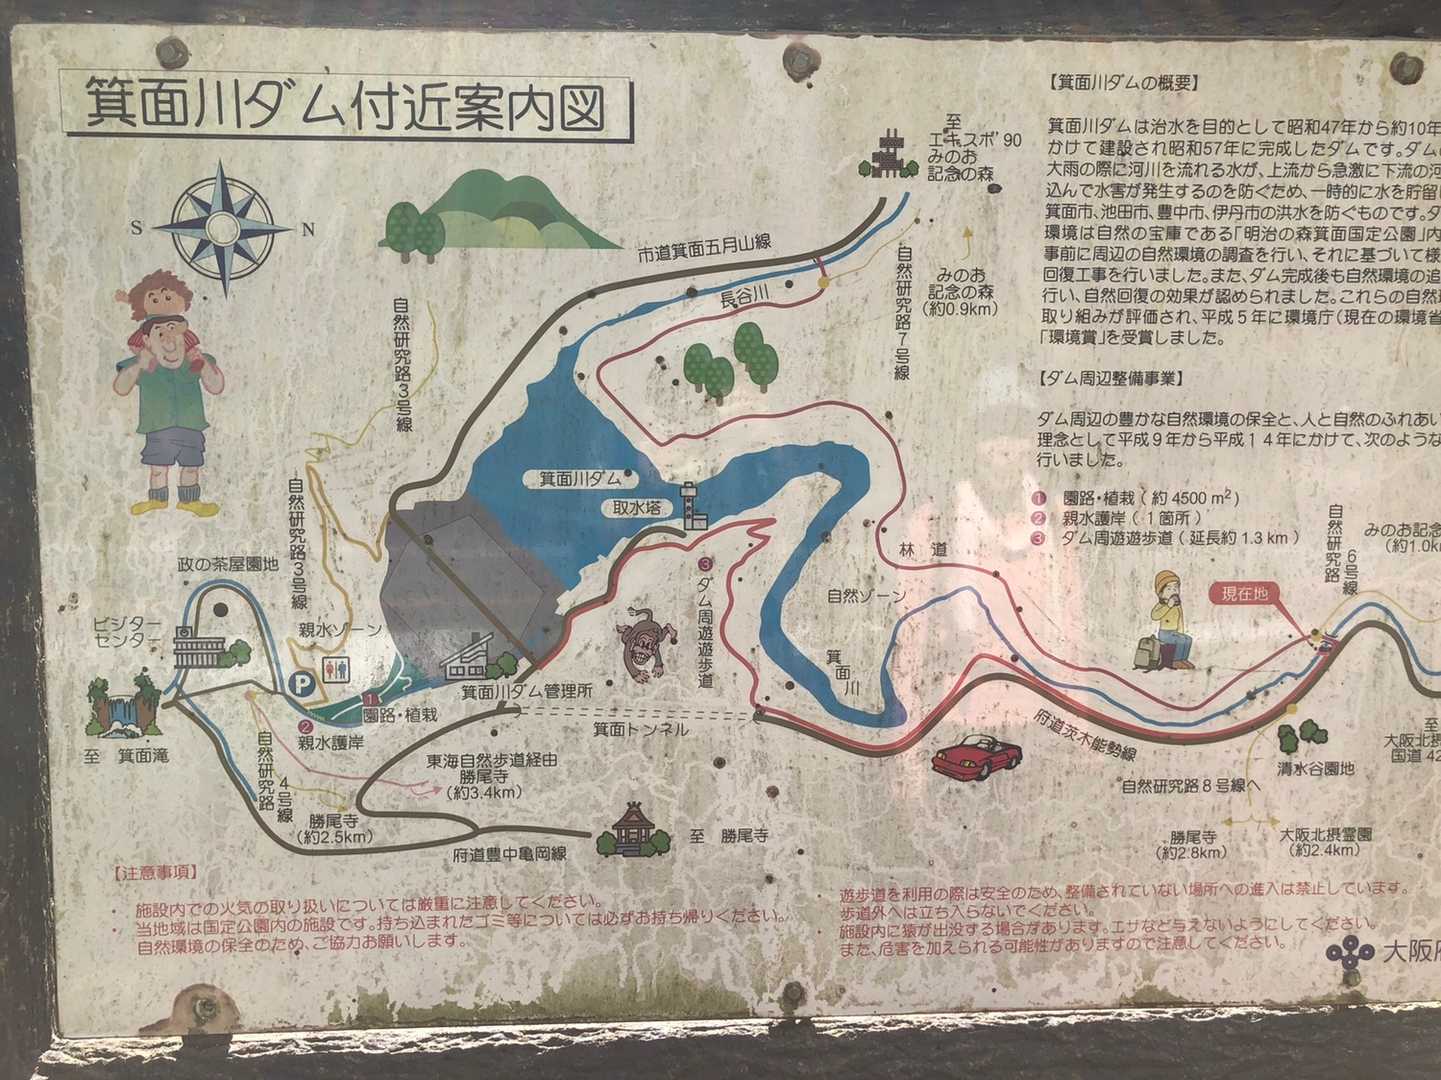 箕面川ダム付近案内図
S
N
至
エキスポ'90
みのお
記念の森
市道箕面五月山線
長谷川
自然研究路7号線
みのお
記念の森
(約0.9km)
自然研究路3号線
自然研究路3号線
箕面川ダム
取水塔
政の茶屋園地
ビジター
センター
親水ゾーン
P
至 箕面滝
1
園路・植栽
2
親水護岸
箕面川ダム管理所
3
ダム周遊遊歩道
箕面トンネル
自然ゾーン
箕面川
林道
自然研究路4号線
東海自然歩道経由
勝尾寺
(約3.4km)
勝尾寺
(約2.5km)
府道豊中亀岡線
至 勝尾寺
府道茨木能勢線
現在地
自然研究路6号線
みのお記念
(約1.0k
清水谷園地
自然研究路8号線へ
勝尾寺
(約2.8km)
大阪北摂霊園
(約2.4km)
至
大阪北摂
国道42
【箕面川ダムの概要】
箕面川ダムは治水を目的として昭和47年から約10年
かけて建設され昭和57年に完成したダムです。ダム
大雨の際に河川を流れる水が、上流から急激に下流の河
込んで水害が発生するのを防ぐため、一時的に水を貯留
箕面市、池田市、豊中市、伊丹市の洪水を防ぐものです。ダ
環境は自然の宝庫である「明治の森箕面国定公園」内
事前に周辺の自然環境の調査を行い、それに基づいて様
回復工事を行いました。また、ダム完成後も自然環境の追
行い、自然回復の効果が認められました。これらの自然
取り組みが評価され、平成5年に環境庁(現在の環境省
「環境賞」を受賞しました。
【ダム周辺整備事業】
ダム周辺の豊かな自然環境の保全と、人と自然のふれあい
理念として平成9年から平成14年にかけて、次のような
行いました。
1 園路・植栽(約4500m2)
2 親水護岸(1箇所)
3 ダム周遊遊歩道(延長約1.3km)
【注意事項】
・ 施設内での火気の取り扱いについては厳重に注意してください。
・ 当地域は国定公園内の施設です。持ち込まれたゴミ等については必ずお持ち帰りください。
自然環境の保全のため、ご協力お願いします。
・ 遊歩道を利用の際は安全のため、整備されていない場所への進入は禁止しています。
歩道外へは立ち入らないでください。
・ 施設内に猿が出没する場合があります。エサなど与えないようにしてください。
また、危害を加えられる可能性がありますので注意してください。
大阪府